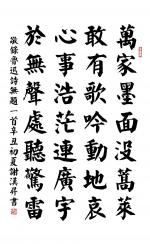 萬家墨面沒蒿萊
敢有歌吟動地哀
心事浩茫連廣宇
於無聲處聽驚雷
敬錄魯迅詩無題一首辛丑初夏謝漢昇書